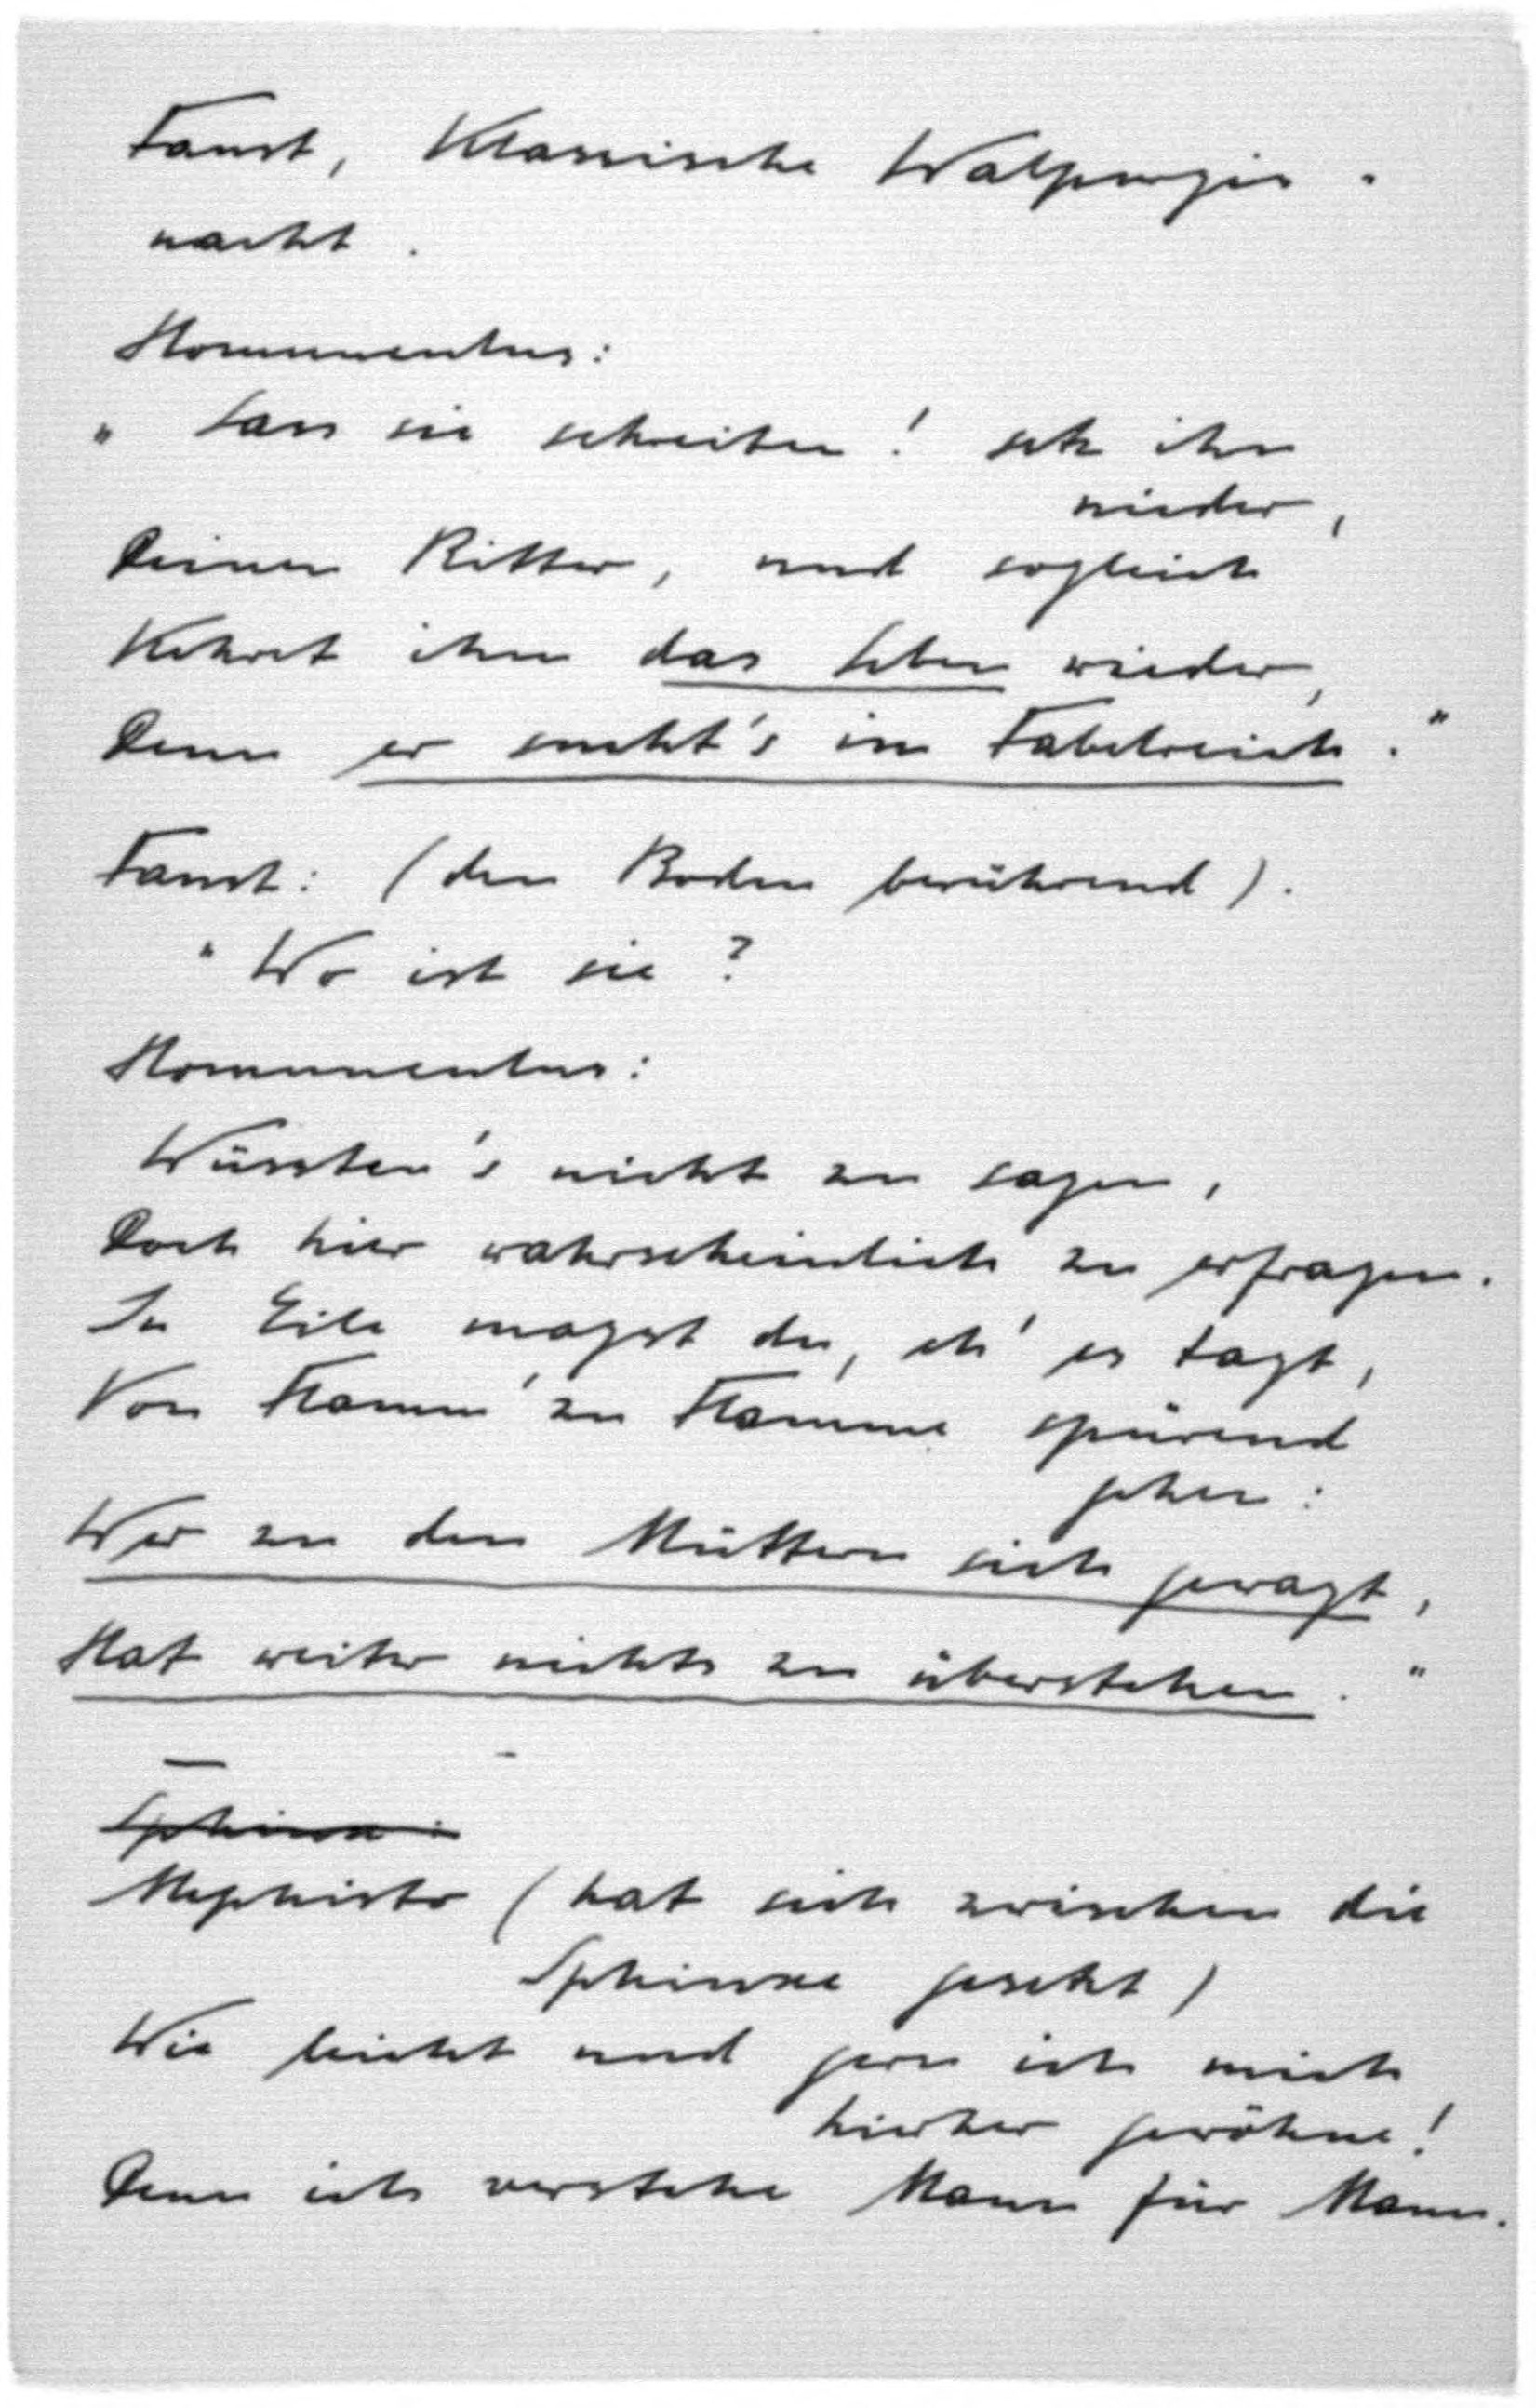 Faust, Klassische Walpurgis-
nacht.
Homunculus:
„Lass sie schreiten! setz ihn
nieder,
Deinen Ritter, und sogleich
Kehret ihm das Leben wieder,
Denn er sucht's im Fabelreich."
Faust: (den Boden berührend).
"Wo ist sie?
Homunculus:
Wüssten's nicht zu sagen,
Doch hier wahrscheinlich zu erfragen.
In Eile magst du, eh' es tagt,
Von Flamm' zu Flamme spürend
gehen:
Wer zu den Müttern sich gewagt,
Hat weiter nichts zu überstehen."
Sphinx:
Mephisto (hat sich zwischen die
Sphinxe gesetzt)
Wie leicht und gern ich mich
hierher gewöhne!
Denn ich verstehe Mann für Mann.